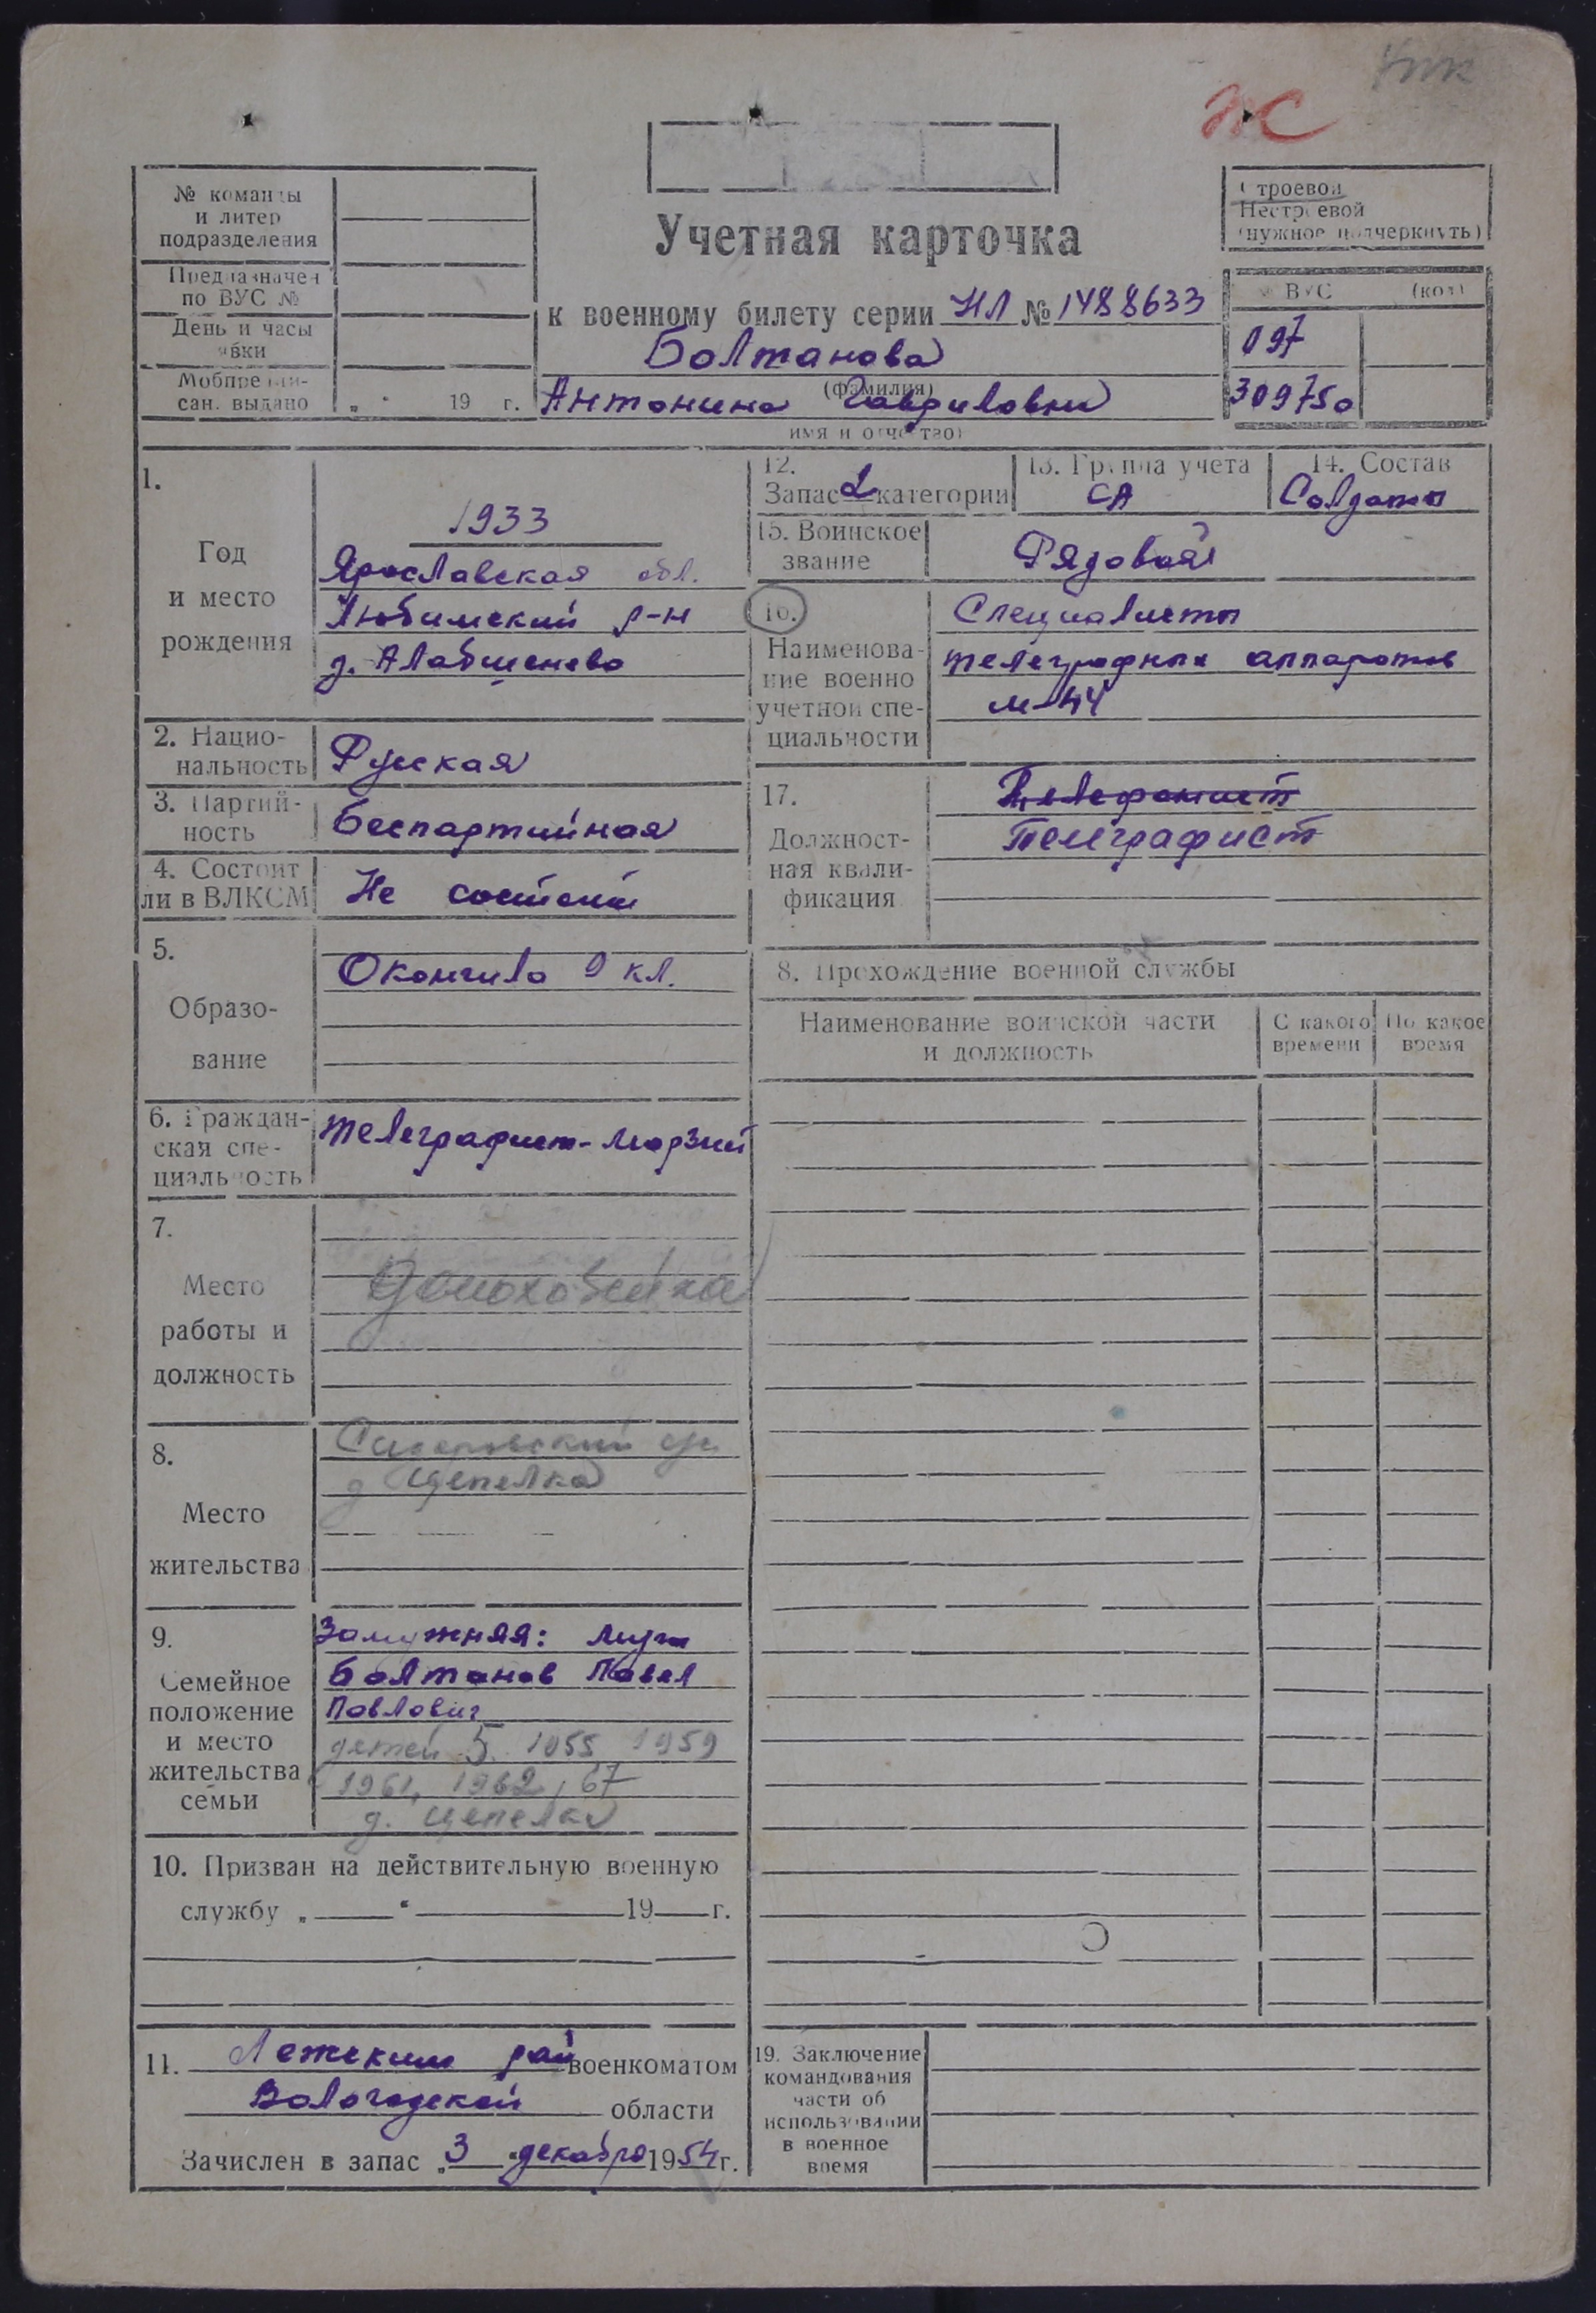 ЖС
№ команды
и литер
подразделения
Предназначен
по ВУС №
День и часы
явки
Мобпредпи-
сан. выдано „ “ 19 г.
Учетная карточка
к военному билету серии НЛ № 1488633
Болтанова
(фамилия)
Антонина Гавриловна
имя и отчество)
Строевой
Нестроевой
(нужное подчеркнуть)
№ ВУС (код)
097
309750
1.
Год
и место
рождения
1933
Ярославская обл.
Любимский р-н
д. Алабшенево
2. Нацио-
нальность
Русская
3. Партий-
ность
Беспартийная
4. Состоит
ли в ВЛКСМ
Не состоит
5.
Образо-
вание
Окончила 9 кл.
6. Граждан-
ская спе-
циальность
Телеграфист-морзист
7.
Место
работы и
должность
Домохозяйка
8.
Место
жительства
д Цепелка
9.
Семейное
положение
и место
жительства
семьи
Замужняя: муж
Болтанов Павел
Павлович
детей 5. 1955 1959
1961, 1962, 67
д. Цепелка
10. Призван на действительную военную
службу „ “ 19 г.
11. Лежским райвоенкоматом
Вологодской области
Зачислен в запас „3“ декабря 1954 г.
12.
Запас 2 категории
13. Группа учета
СА
14. Состав
Солдаты
15. Воинское
звание
Рядовой
16.
Наименова-
ние военно
учетной спе-
циальности
Специалисты
телеграфных аппаратов
М-44
17.
Должност-
ная квали-
фикация
Телефонист
Телеграфист
8. Прохождение военной службы
Наименование воинской части
и должность
С какого
времени
По какое
время
19. Заключение
командования
части об
использовании
в военное
время